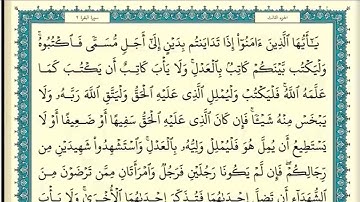 الجزء الثالث سورة البقرة ٢
يَٰٓأَيُّهَا ٱلَّذِينَ ءَامَنُوٓا۟ إِذَا تَدَايَنتُم بِدَيْنٍ إِلَىٰٓ أَجَلٍ مُّسَمًّى فَٱكْتُبُوهُ ۚ
وَلْيَكْتُب بَّيْنَكُمْ كَاتِبٌۢ بِٱلْعَدْلِ ۚ وَلَا يَأْبَ كَاتِبٌ أَن يَكْتُبَ كَمَا
عَلَّمَهُ ٱللَّهُ ۚ فَلْيَكْتُبْ وَلْيُمْلِلِ ٱلَّذِى عَلَيْهِ ٱلْحَقُّ وَلْيَتَّقِ ٱللَّهَ رَبَّهُۥ وَلَا
يَبْخَسْ مِنْهُ شَيْـًٔا ۚ فَإِن كَانَ ٱلَّذِى عَلَيْهِ ٱلْحَقُّ سَفِيهًا أَوْ ضَعِيفًا أَوْ لَا
يَسْتَطِيعُ أَن يُمِلَّ هُوَ فَلْيُمْلِلْ وَلِيُّهُۥ بِٱلْعَدْلِ ۚ وَٱسْتَشْهِدُوا۟ شَهِيدَيْنِ مِن
رِّجَالِكُمْ ۖ فَإِن لَّمْ يَكُونَا رَجُلَيْنِ فَرَجُلٌ وَٱمْرَأَتَانِ مِمَّن تَرْضَوْنَ مِنَ
ٱلشُّهَدَآءِ أَن تَضِلَّ إِحْدَىٰهُمَا فَتُذَكِّرَ إِحْدَىٰهُمَا ٱلْأُخْرَىٰ ۚ وَلَا يَأْبَ